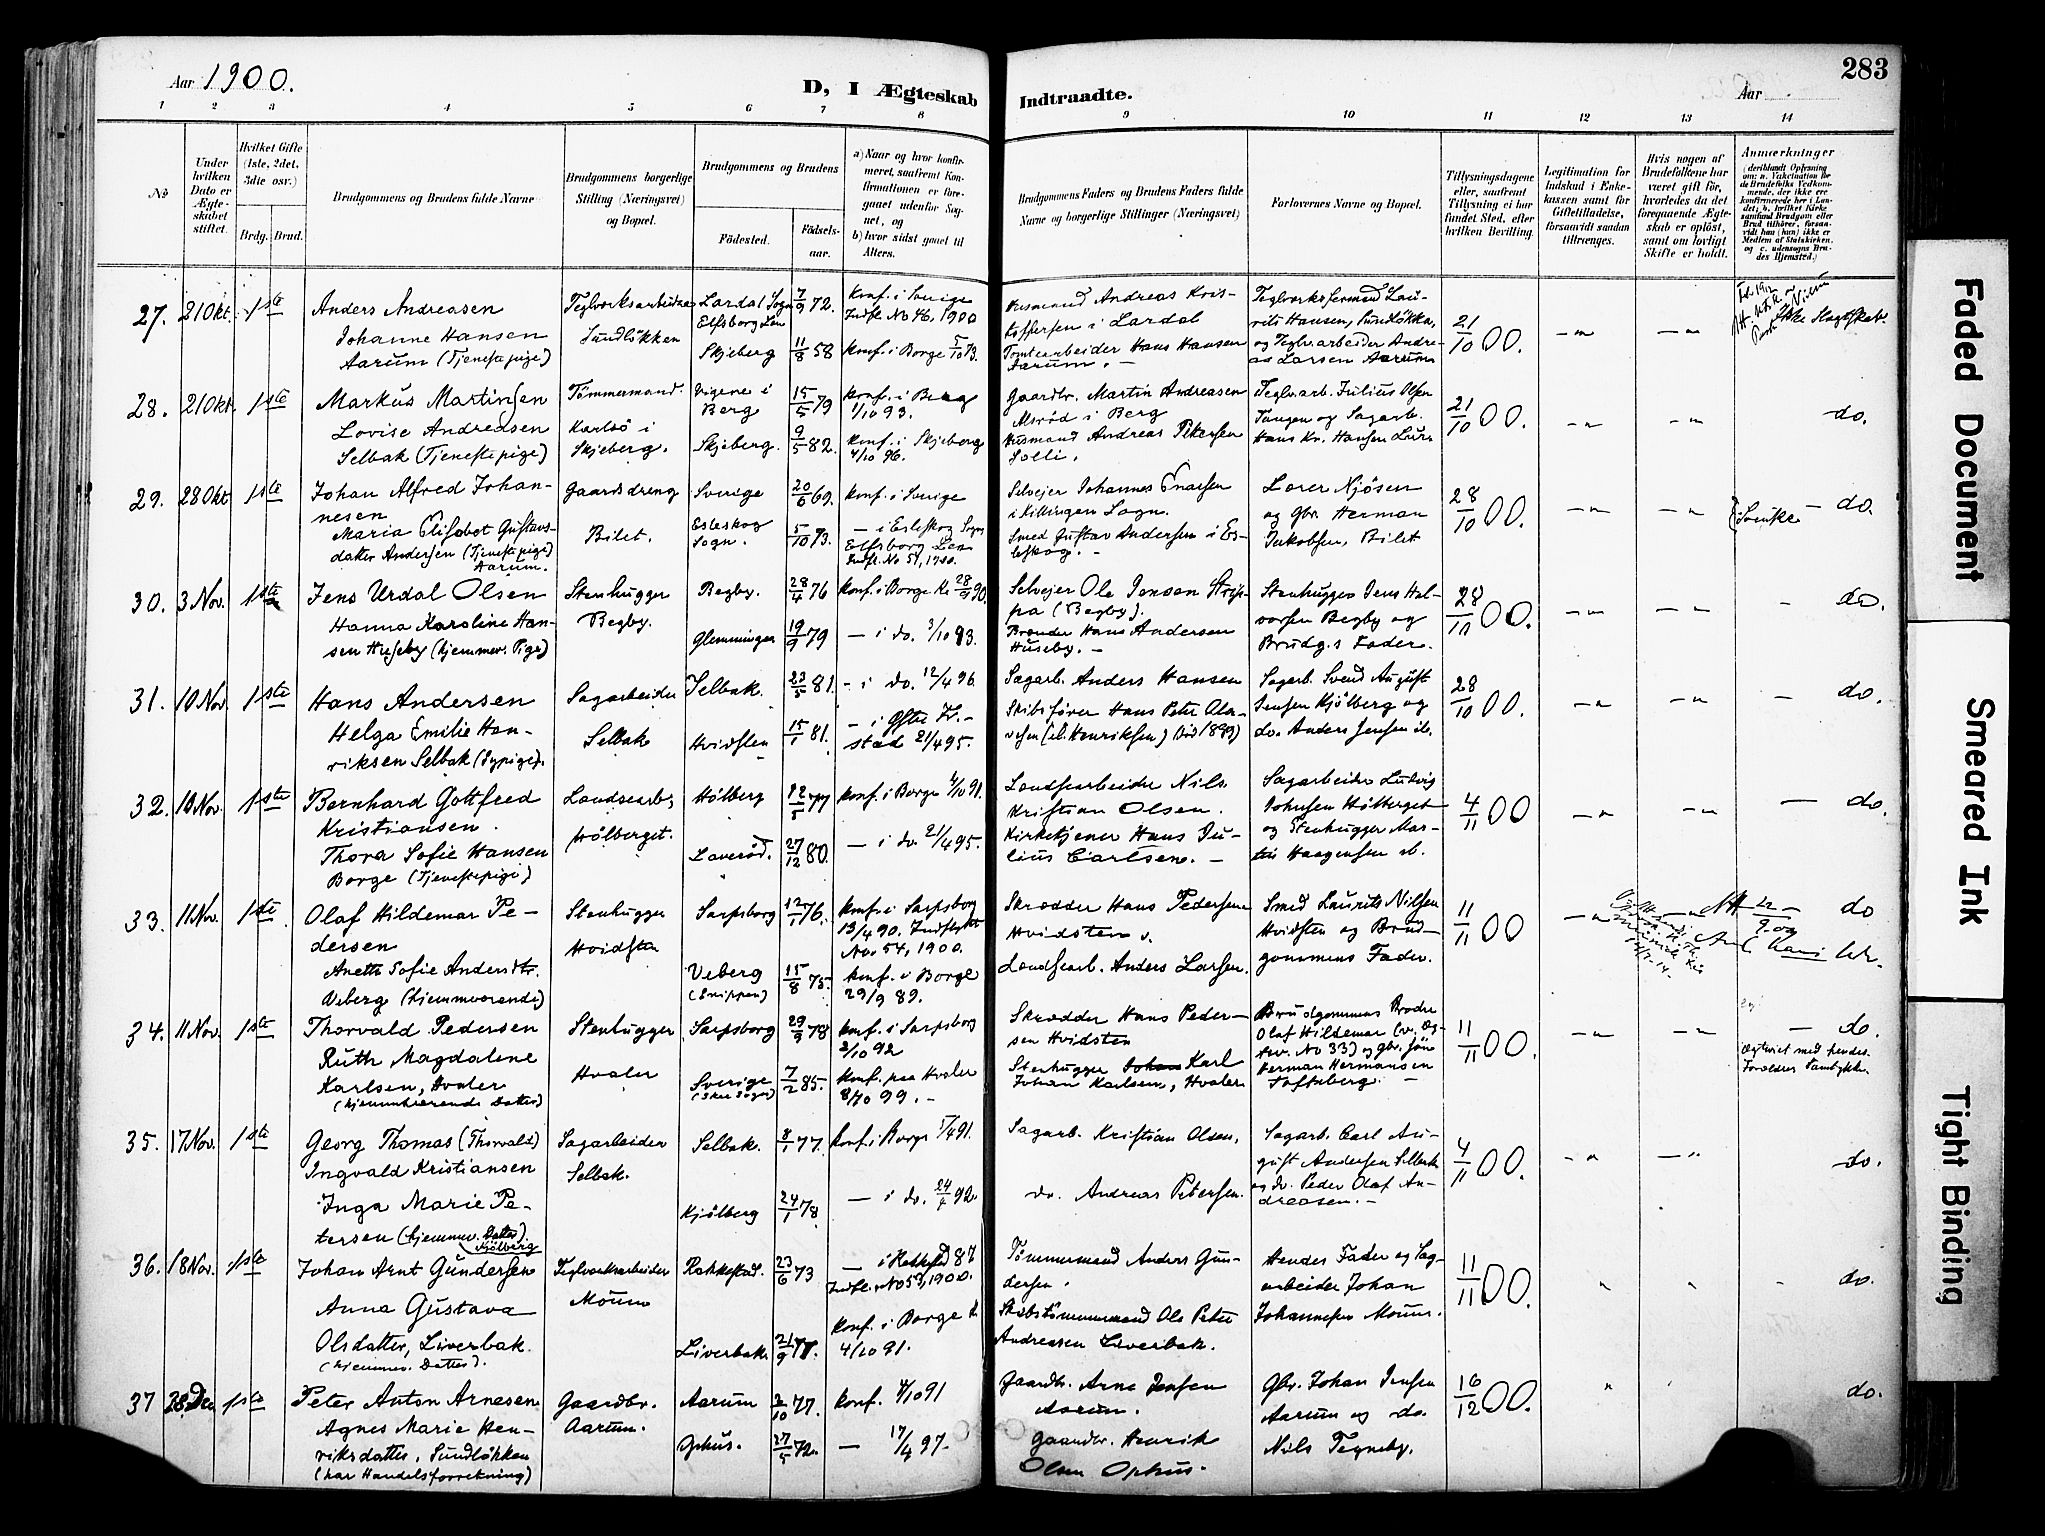 Aar 1900.
D, I Ægteskab Indtraadte.
Aar
283
1 2 3 4 5 6 7 8 9 10 11 12 13 14
No
Under hvilken Dato er Ægteskabet stiftet.
Hvilket Gifte (1ste, 2det, 3die osv.)
Brdg. Brud.
Brudgommens og Brudens fulde Navne
Brudgommens borgerlige Stilling (Næringsvei) og Bopæl.
Brudgommens og Brudens
Födested.
Födselsaar.
a) Naar og hvor konfirmeret, saafremt Konfirmationen er foregaaet udenfor Sognet, og
b) hvor sidst gaaet til Alters.
Brudgommens Faders og Brudens Faders fulde Navne og borgerlige Stillinger (Næringsvei)
Forlovernes Navne og Bopæl.
Tillysningsdagene eller, saafremt Tillysning ei har fundet Sted, efter hvilken Bevilling.
Legitimation for Indskud i Enkekassen samt for Giftetilladelse, forsaavidt saadan tiltrænges.
Hvis nogen af Brudefolkene har været gift før, hvorledes da det foregaaende Ægteskab er oplöst, samt om lovligt Skifte er holdt.
Anmærkninger
(deriblandt Oplysning om: a. Vakcination for de Brudefolks Vedkommende, der ikke ere konfirmerede her i Landet; b. hvilket Kirkesamfund Brudgom eller Brud tilhörer, forsaavidt han (hun) ikke er Medlem af Statskirken, og c. udensogns Brudes Hjemsted.)
27. 21 Okt. 1ste
Anders Andreasen
Johanne Hansen
Aarum (Tjenestepige)
Teglværksarbeider
Sundlökken
Lardal Sogn
Elfsborg Len
Skjeberg
7/9 72.
11/8 58
Konf. i Sverige
Indfl. No 46, 1900
Konf. i Borge 5/10 73.
Husmand Andreas Kristoffersen i Lardal
Tomtearbeider Hans Hansen
Aarum. -
Teglværksformand Laurits Hansen, Sundlökka,
og Teglv.arbeider Andreas Larsen Aarum
21/10 00.
Ikke Slægtskab.
28. 21 Okt. 1ste
Markus Martinsen
Lovise Andreasen
Selbak (Tjenestepige)
Tömmermand.
Karlsö i
Skjeberg.
Vigene i
Berg
Skjeberg.
15/5 79
9/5 82.
Konf. i Berg
1/10 93.
Konf. i Skjeberg
4/10 96.
Gaardbr. Martin Andreasen
Alsröd i Berg
Husmand Andreas Petersen
Solli.
Teglv.arb. Julius Olsen
Tangen og Sagarb.
Hans Kr. Hansen Lure
21/10 00.
do.
29. 28 Okt. 1ste
Johan Alfred Johannesen
Maria Elisabet Gustavsdatter Andersen (Tjenestepige)
Aarum.
Gaardsdreng
Bilet.
Sverige
Esleskog
Sogn.
20/6 69.
5/10 73.
Konf. i Sverige
— i Esleskog Sogn
Elfsborg Len
Indfl. No 51, 1900.
Selveier Johannes Enarsen
i Killingen Sogn.
Smed Gustav Andersen i Esleskog. -
Lorer Njösen
og Gbr. Herman
Jakobsen, Bilet
28/10 00.
Svenske - do.
30. 3 Nov. 1ste
Jens Urdal Olsen
Hanna Karoline Hansen Huseby (hjemmev. Pige)
Stenhugger
Begby.
Begby.
Glemminger
28/4 76
19/9 79
Konf. i Borge K. 28/9 90.
— i do. 3/10 93.
Selveier Ole Jensen
(Begby).
Brænder Hans Andersen
Huseby. -
Stenhugger Jens Halvorsen Begby og
Brudg.s Fader.
28/10 00.
- do.
31. 10 Nov. 1ste
Hans Andersen
Helga Emilie Henriksen Selbak (Sypige).
Sagarbeider
Selbak
Selbak.
Hvidsten
23/5 81.
15/1 81.
- i do. 12/4 96.
— i Østre Fr.stad 21/4 95.
Sagarb. Anders Hansen
Skibsfører Hans Peter
(Henriksen) död 1899)
Sagarb. Svend August
Jensen Kjölberg og
do. Anders Jensen ib.
28/10 00.
- do.
32. 10 Nov. 1ste
Bernhard Gottfred
Kristiansen.
Thora Sofie Hansen
Borge (Tjenestepige)
Landsearb.
Hölberget.
Hölberg
Laveröd.
12/5 77
27/12 80.
Konf. i Borge 4/10 91.
— i do. 21/4 95.
Landsearbeider Nils
Kristian Olsen.
Kirketjener Hans Julius Carlsen. -
Sagarbeider Ludvig
Johnsen Hölberget
og Stenhugger Martin Haagensen ib.
4/11 00
— do.
33. 11 Nov. 1ste
Olaf Hildemar Pedersen
Anette Sofie Andersdtr.
Veberg (hjemmeværende)
Stenhugger
Hvidsten
Sarpsborg
Veberg
(Snippen)
12/1 76.
15/8 75.
Konf. i Sarpsborg
13/4 90. Indflyttet
No. 54, 1900.
Konf. i Borge
29/9 89.
Skrædder Hans Pedersen
Hvidsten.
Landsearb. Anders Larsen.
Smed Laurits Nilsen
Hvidsten og Brudgommens Fader.
11/11 00
do
34. 11 Nov. 1ste
Thorvald Pedersen
Ruth Magdalene
Karlsen, Hvaler
(hjemmeværende Datter)
Stenhugger
Hvaler
Sarpsborg
Sverige
29/9 78
7/2 85.
Konf. i Sarpsborg
2/10 92
Konf. paa Hvaler
8/10 99. -
Skrædder Hans Pedersen Hvidsten
Stenhugger Karl
Johan Karlsen, Hvaler
Brudgommens Broder
Olaf Hildemar
No 33) og gbr.
Herman Hermansen
Tofteberg. -
11/11 00.
— do.
Ægteviet med hendes
Forældres Samtykke.
35. 17 Nov. 1ste
Georg Thomas (Thorvald)
Ingvald Kristiansen
Inga Marie Petersen (hjemmev. Datter)
Kjölberg
Sagarbeider
Selbak.
Selbak.
Kjölberg
8/1 77.
24/1 78
Konf. i Borge 5/4 91.
— i do. 24/4 92
Sagarb. Kristian Olsen.
do. Andreas Petersen.
Sagarb. Carl August Andersen Selbak
og do. Peder Olaf Andreasen. -
4/11 00.
do.
36. 18 Nov. 1ste
Johan Arnt Gundersen
Anna Gustava
Olsdatter, Liverbak.
(hjemmev. Datter).
Teglværksarbeider
Moum
Rakkestad.
Liverbak
23/6 73
21/9 77.
— i Rakkestad 87
Indfl. No 53, 1900.
Konf. i Borge K.
4/10 91.
Tömmermand Anders Gundersen.
Skibstömmermand Ole Peter
Andreasen Liverbak.
Hendes Fader og Sagarbeider Johan
Johannesen Moum.
11/11 00.
do.
37 28 Dec 1ste
Peter Anton Arnesen
Agnes Marie Henriksdatter, Sundlökken
(har Handelsforretning)
Gaardbr.
Aarum.
Aarum
Ophus.
2/10 77.
27/5 72.
Konf. 4/10 91
— 17/4 97.
Gaardbr. Arne Jensen
Aarum.
Gaardbr. Henrik
Olsen Ophus.
Gbr. Johan Jensen
Aarum og do.
Nils Tegneby.
16/12 00.
do.
Faded Document
Smeared Ink
Tight Binding